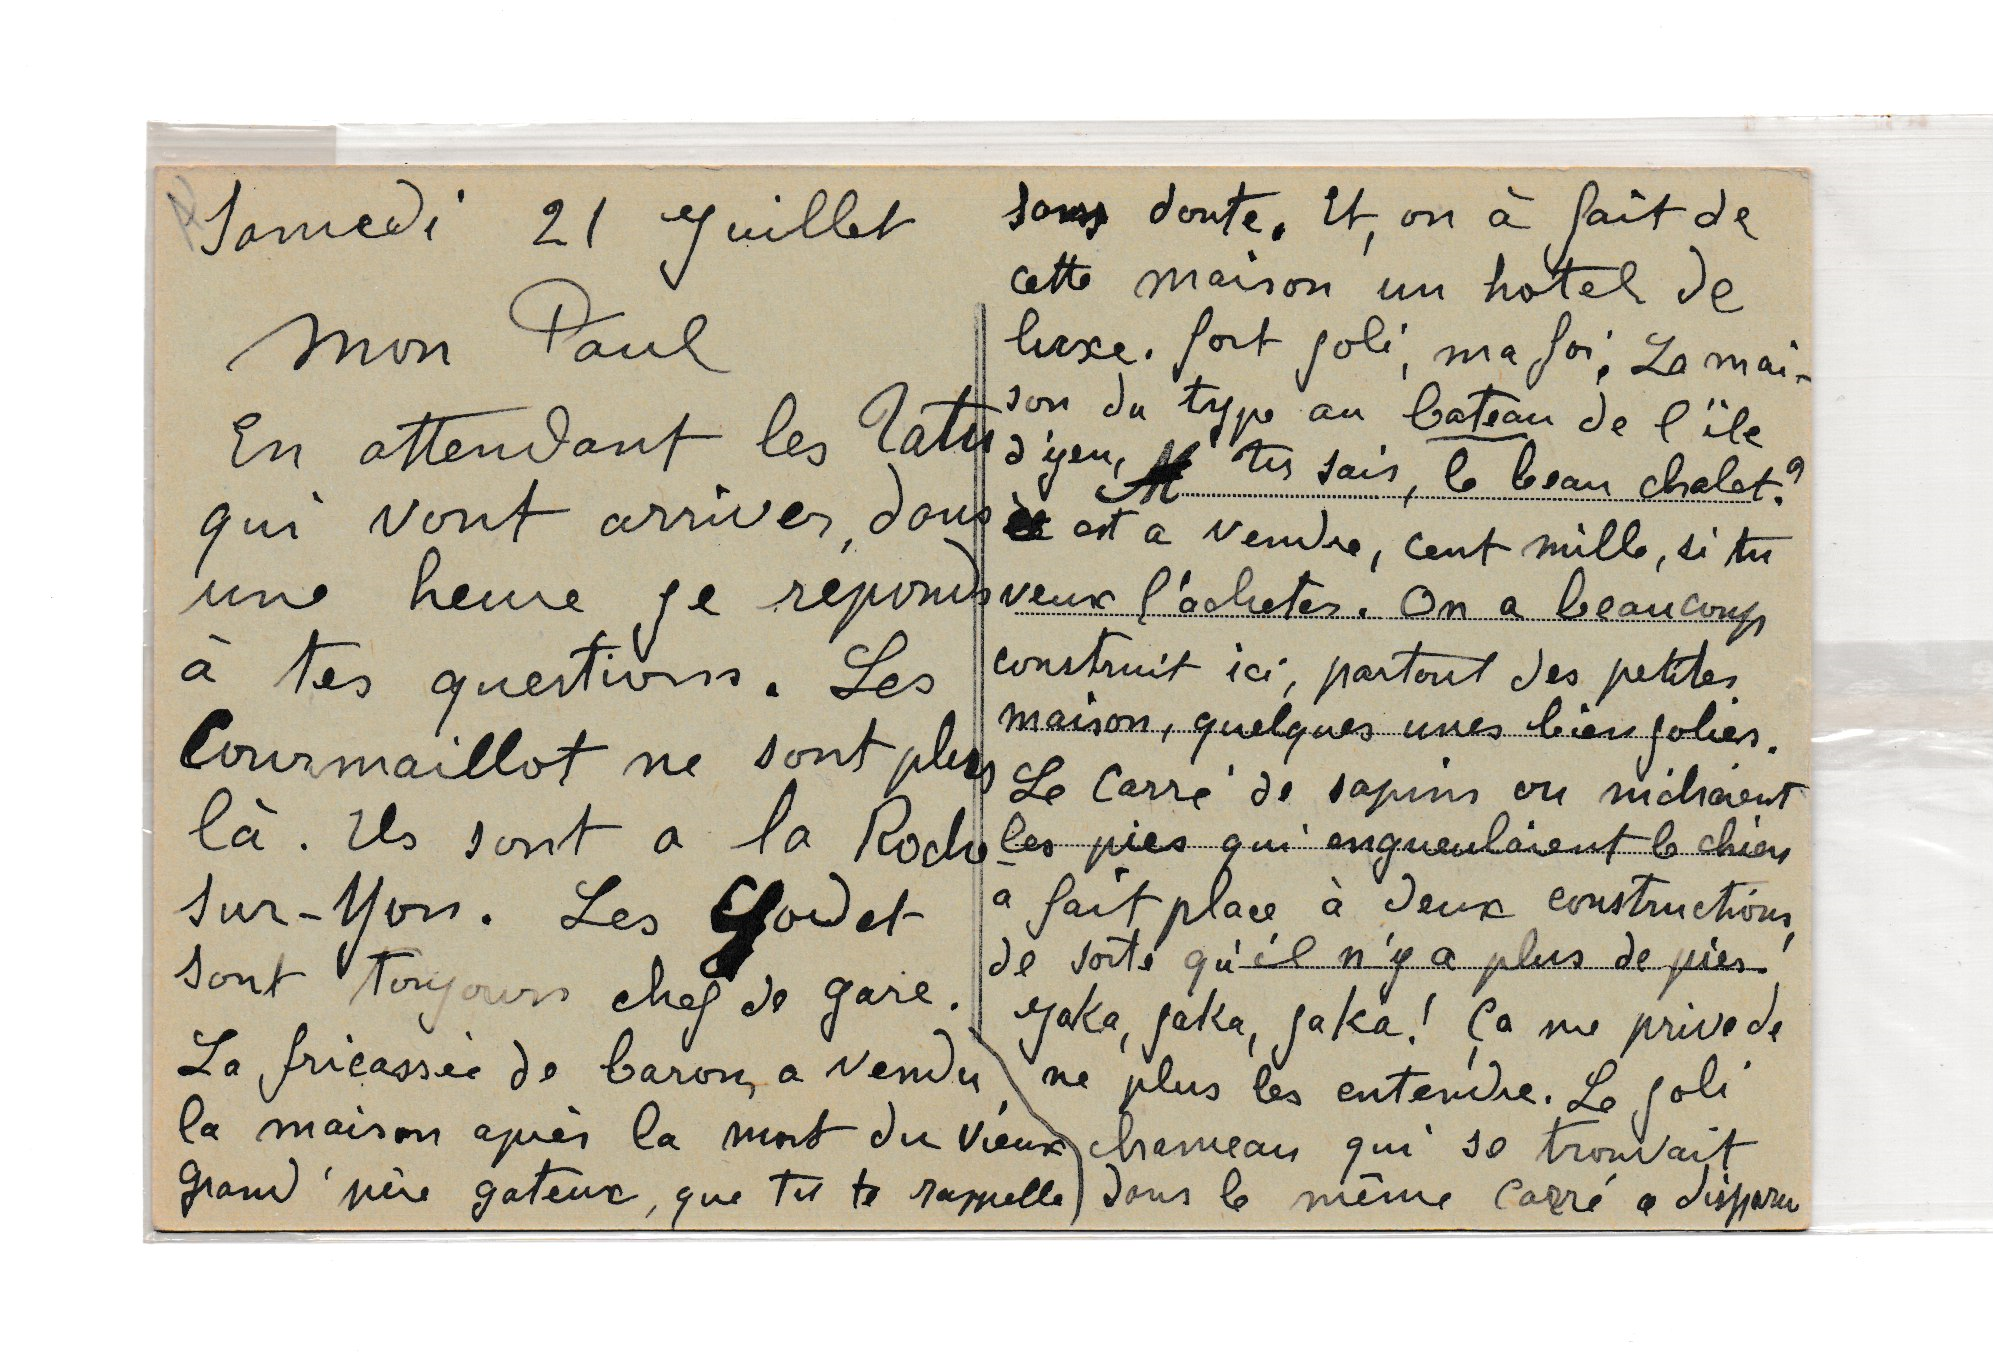 Samedi 21 Juillet
Mon Paul
En attendant les Tatu
qui vont arriver, dans
une heure je réponds
à tes questions. Les
Courmaillot ne sont plus
là. Ils sont a la Roche
sur-Yon. Les Godet
sont toujours chef de gare.
La fricassée de baron, a vendu
la maison après la mort du vieux
grand'père gateux, que tu te rappelle
sans doute. Et, on à fait de
cette maison un hotel de
luxe. fort joli, ma foi. La mai-
son du type au bateau de l'ïle
d'yeu, tu sais, le beau chalet?
est a vendre, cent mille, si tu
veux l'acheter. On a beaucoup
construit ici, partout des petites
maison, quelques unes bien jolies.
Le Carré de sapins ou nichaient
les pies qui engueulaient le chien
a fait place à deux constructions,
de sorte qu'il n'y a plus de pies!
Jaka, jaka, jaka! Ça me prive de
ne plus les entendre. Le joli
chameau qui se trouvait
dans le même carré a disparu